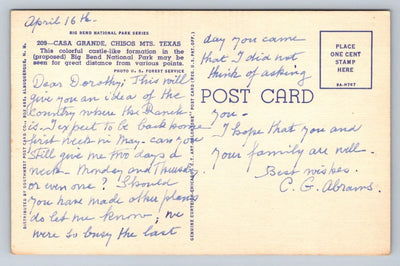 April 16th-
BIG BEND NATIONAL PARK SERIES
209—CASA GRANDE, CHISOS MTS. TEXAS
This colorful castle-like formation in the
(proposed) Big Bend National Park may be
seen for great distance from various points.
PHOTO U. S. FOREST SERVICE
Dear Dorothy; This will
give you an idea of the
country where the Ranch
is. I expect to be back home
first week in May - can you
still give me two days a
week - Monday and Thursday
or even one? Should
you have made other plans
do let me know; we
were so busy the last
day you came
that I did not
think of asking
you -
I hope that you and
your family are well-
Best wishes.
C. G. Abrams.
POST CARD
PLACE
ONE CENT
STAMP
HERE